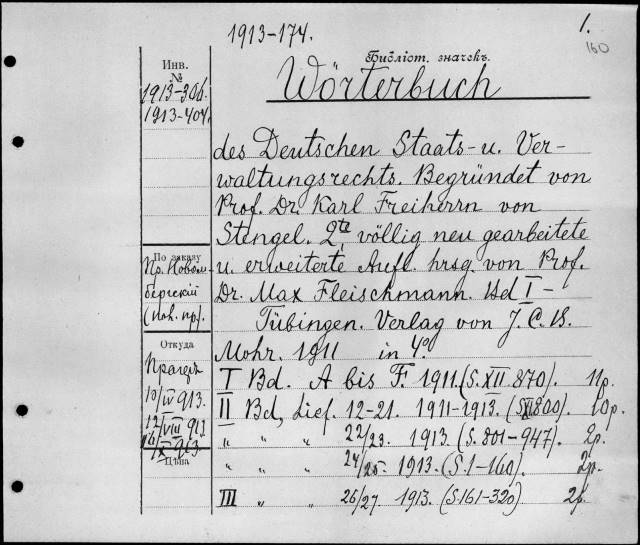 1913-174.
1.
160
Библіот. значекъ.
Инв.
№
1913-306.
1913-404.
Wörterbuch
des Deutschen Staats- u. Ver-
waltungsrechts. Begründet von
Prof. Dr. Karl Freiherrn von
Stengel. 2te völlig neu gearbeitete
u. erweiterte Aufl. hrsg. von Prof.
Dr. Max Fleischmann. Bd I -
Tübingen. Verlag von J. C. B.
Mohr. 1911 in 4°
По заказу
Пр. Новом-
бергскій
Откуда
10/IV 913.
12/VIII 913
16/IX 913.
Цѣна
I Bd. A bis F. 1911. (S. XII 870). 11р.
II Bd, Lief. 12-21. 1911-1913. (S. 800). 10р.
" " " 22/23. 1913. (S. 801-947). 2р.
" " " 24/25. 1913. (S. 1-160). 2р.
III " " 26/27. 1913. (S. 161-320) 2р.